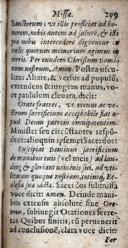 Missa. 299
Sanctorum; vt illis proficiat ad honorem, nobis autem ad salutē, & illi
pro nobis intercedere dignentur in
cælis quorum memoriam agimus in
terris. Per eundem Christum Dominum nostrum, Amen. Postea osculatur Altare, & versus ad populū,
extendens & iungens manus, voce paululum eleuata, dicit:
Orate fratres, vt meum ac vestrum sacrificium acceptabile fiat apud Deum patrem omnipotentem.
Minister seu circūstantes respōdent: alioquin ipsemet Sacerdos:
Suscipiat Dominus sacrificium
de manibus tuis (vel meis) ad laudem, & gloriam nominis sui, ad vtilitatem quoque nostram, totiusq́;
Ecclesiæ suæ sanctæ. Sacerdos submissa
voce dicit: Amen. Deinde manibus extensis absolutè sine Oremus, subiungit Orationes secretas. Quibus finitis, cū peruenerit
ad conclusionē, clara voce dicit:
Per